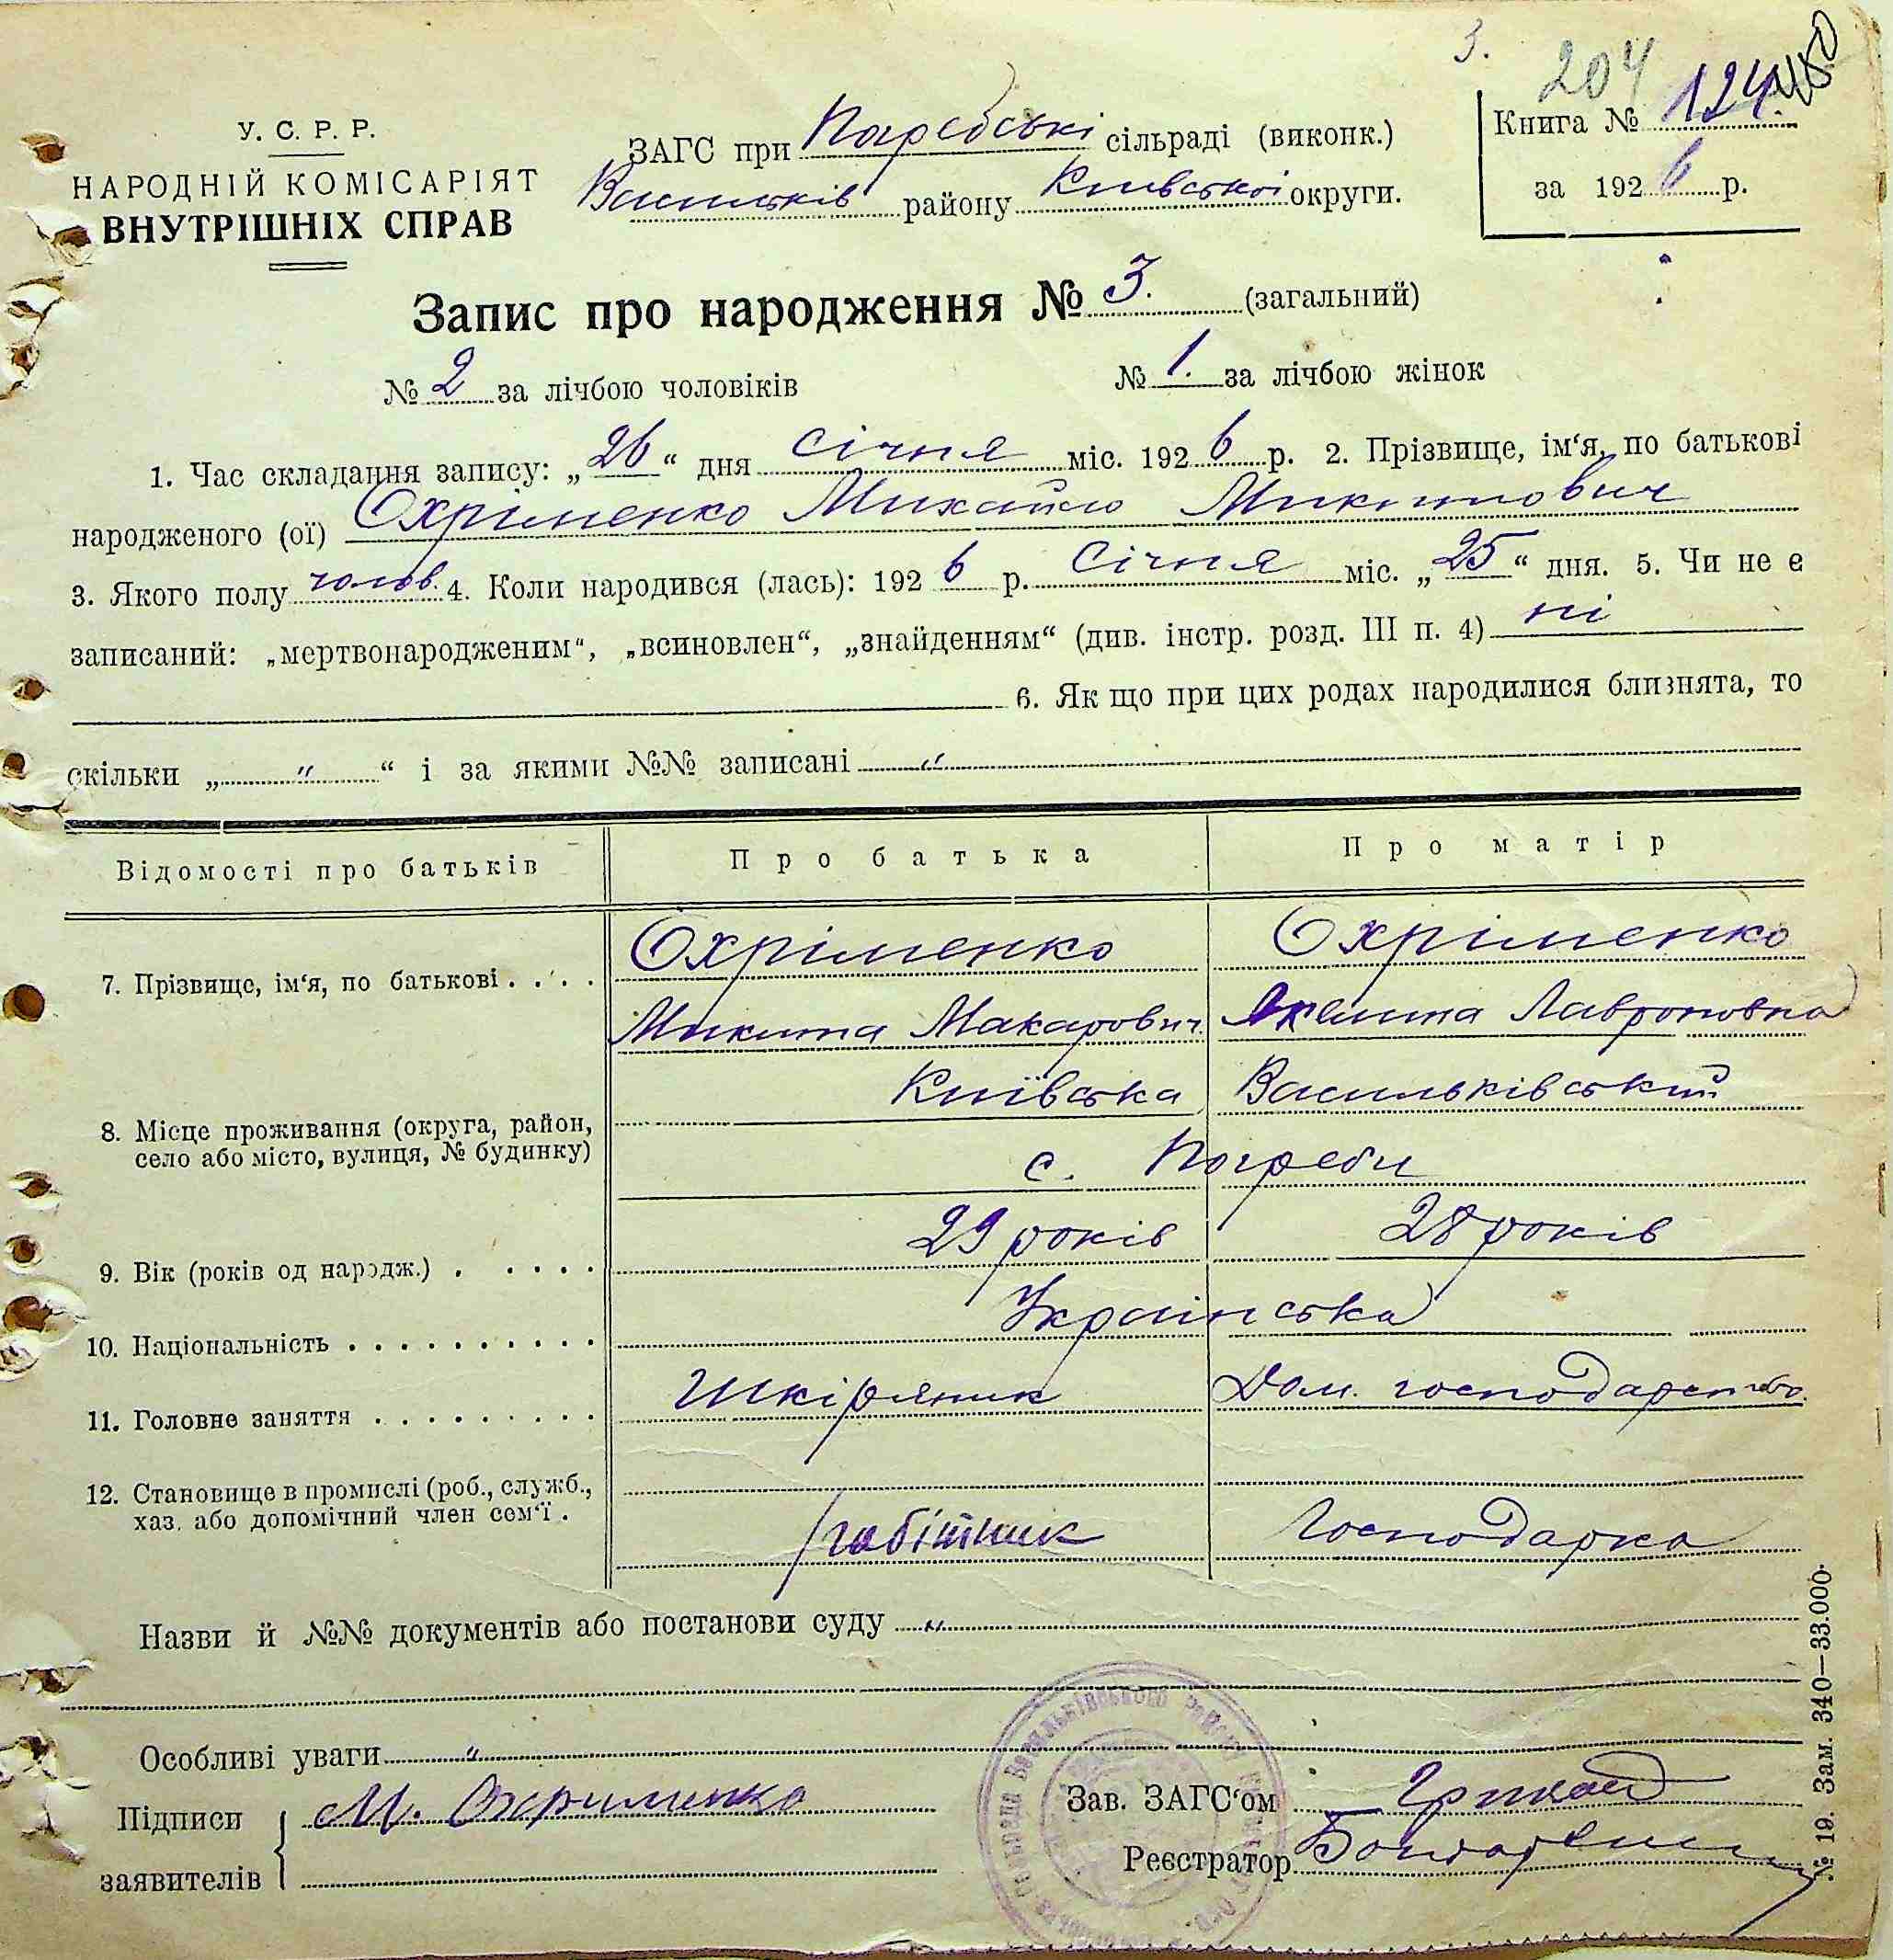 3.
204
У. С. Р. Р.
НАРОДНІЙ КОМІСАРІЯТ
ВНУТРІШНІХ СПРАВ
ЗАГС при Погребські сільраді (виконк.)
Васильків району Київської округи.
Книга № 124
за 1926 р.
Запис про народження № 3. (загальний)
№ 2 за лічбою чоловіків № 1. за лічбою жінок
1. Час складання запису: „26“ дня січня міс. 1926 р. 2. Прізвище, ім‘я, по батькові
народженого (ої) Охріменко Михайло Микитович
3. Якого полу чолов. 4. Коли народився (лась): 1926 р. Січня міс. „25“ дня. 5. Чи не є
записаний: „мертвонародженим“, „всиновлен“, „знайденням“ (див. інстр. розд. III п. 4) ні
6. Як що при цих родах народилися близнята, то
скільки „ " “ і за якими №№ записані "
Відомості про батьків Про батька Про матір
7. Прізвище, ім‘я, по батькові . . . . Охріменко Охріменко
Микита Макарович Лавроновна
Київська Васильківський
8. Місце проживання (округа, район,
село або місто, вулиця, № будинку) с. Погреби
9. Вік (років од народж.) . . . . . . 29 років 28 років
10. Національність . . . . . . . . . . . Українська
11. Головне заняття . . . . . . . . . . Шкіряник Дом. господарство.
12. Становище в промислі (роб., служб.,
хаз. або допомічний член сем‘ї . робітник Господарка
Назви й №№ документів або постанови суду "
Особливі уваги "
Підписи М. Охрименко
заявителів
Зав. ЗАГС‘ом
Реєстратор
№ 19. Зам. 340—33.000.